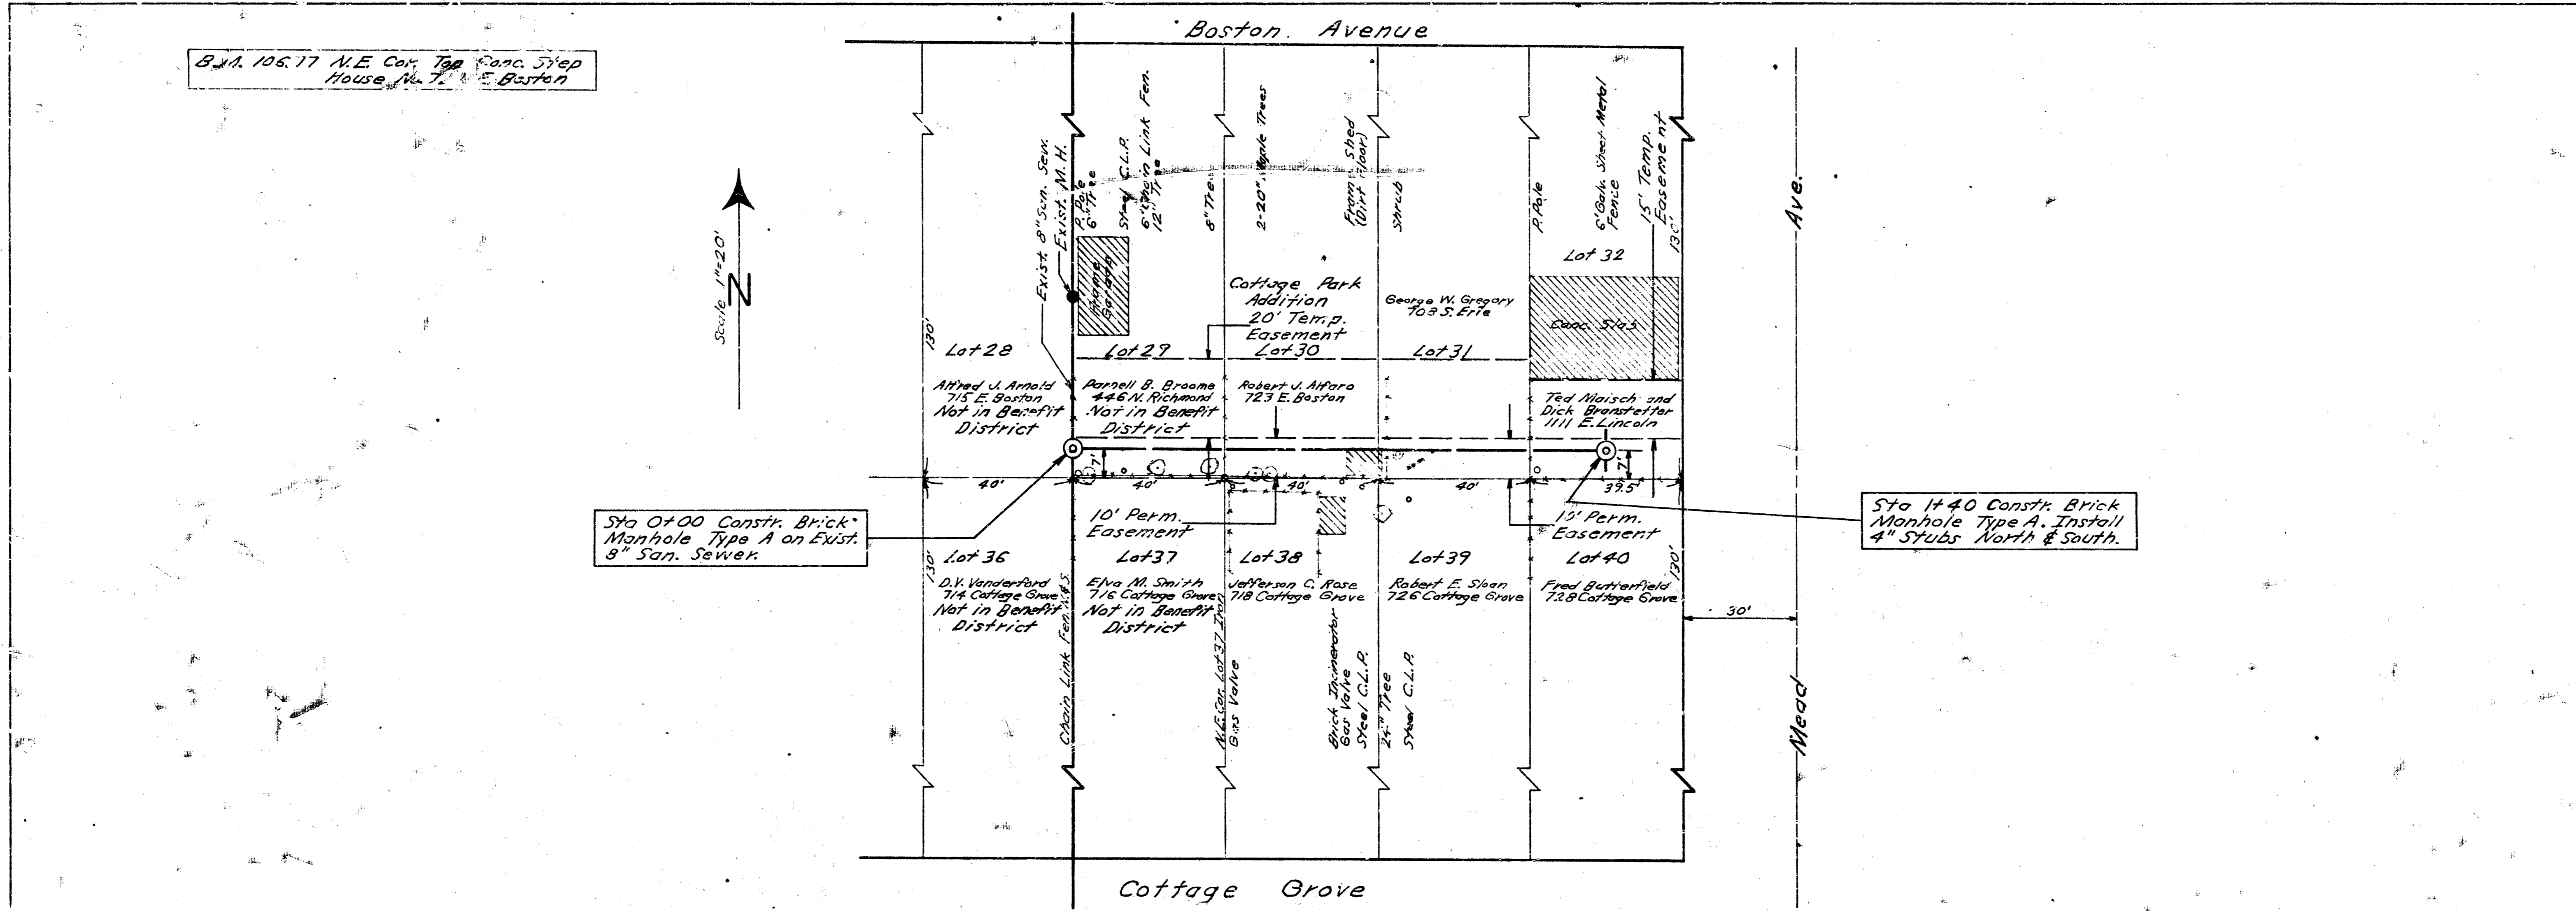 Boston. Avenue
B.M. 106.77 N.E. Cor. Top Conc. Step
House No. 7 E. Boston
Scale 1"=20'
N
Exist. 8" San. Sew.
Exist. M.H.
P. Pole
6" Tree
Steel C.L.P.
6' Chain Link Fen.
12" Tree
8" Tree
2-20" Maple Trees
Frame Shed
(Dirt Floor)
Shrub
P. Pole
6' Galv. Sheet Metal
Fence
15' Temp.
Easement
130'
Ave.
Lot 32
Frame
Garage
Cottage Park
Addition
20' Temp.
Easement
George W. Gregory
708 S. Erie
Conc. Slab
130'
Lot 28
Lot 29
Lot 30
Lot 31
Alfred J. Arnold
715 E. Boston
Not in Benefit
District
Parnell B. Broome
446 N. Richmond
Not in Benefit
District
Robert J. Alfaro
723 E. Boston
Ted Maisch and
Dick Branstetter
1111 E. Lincoln
7'
7'
40'
40'
40'
40'
39.5'
Sta 0+00 Constr. Brick
Manhole Type A on Exist.
8" San. Sewer.
10' Perm.
Easement
10' Perm.
Easement
Sta 1+40 Constr. Brick
Manhole Type A. Install
4" Stubs North & South.
130'
Lot 36
Lot 37
Lot 38
Lot 39
Lot 40
130'
D.V. Vanderford
714 Cottage Grove
Not in Benefit
District
Elva M. Smith
716 Cottage Grove
Not in Benefit
District
Jefferson C. Rose
718 Cottage Grove
Robert E. Sloan
726 Cottage Grove
Fred Butterfield
728 Cottage Grove
30'
Chain Link Fen. N.&S.
N.E. Cor. Lot 37 Iron
Gas Valve
Brick Incinerator
Gas Valve
Steel C.L.P.
24" Tree
Steel C.L.P.
Mead
Cottage Grove